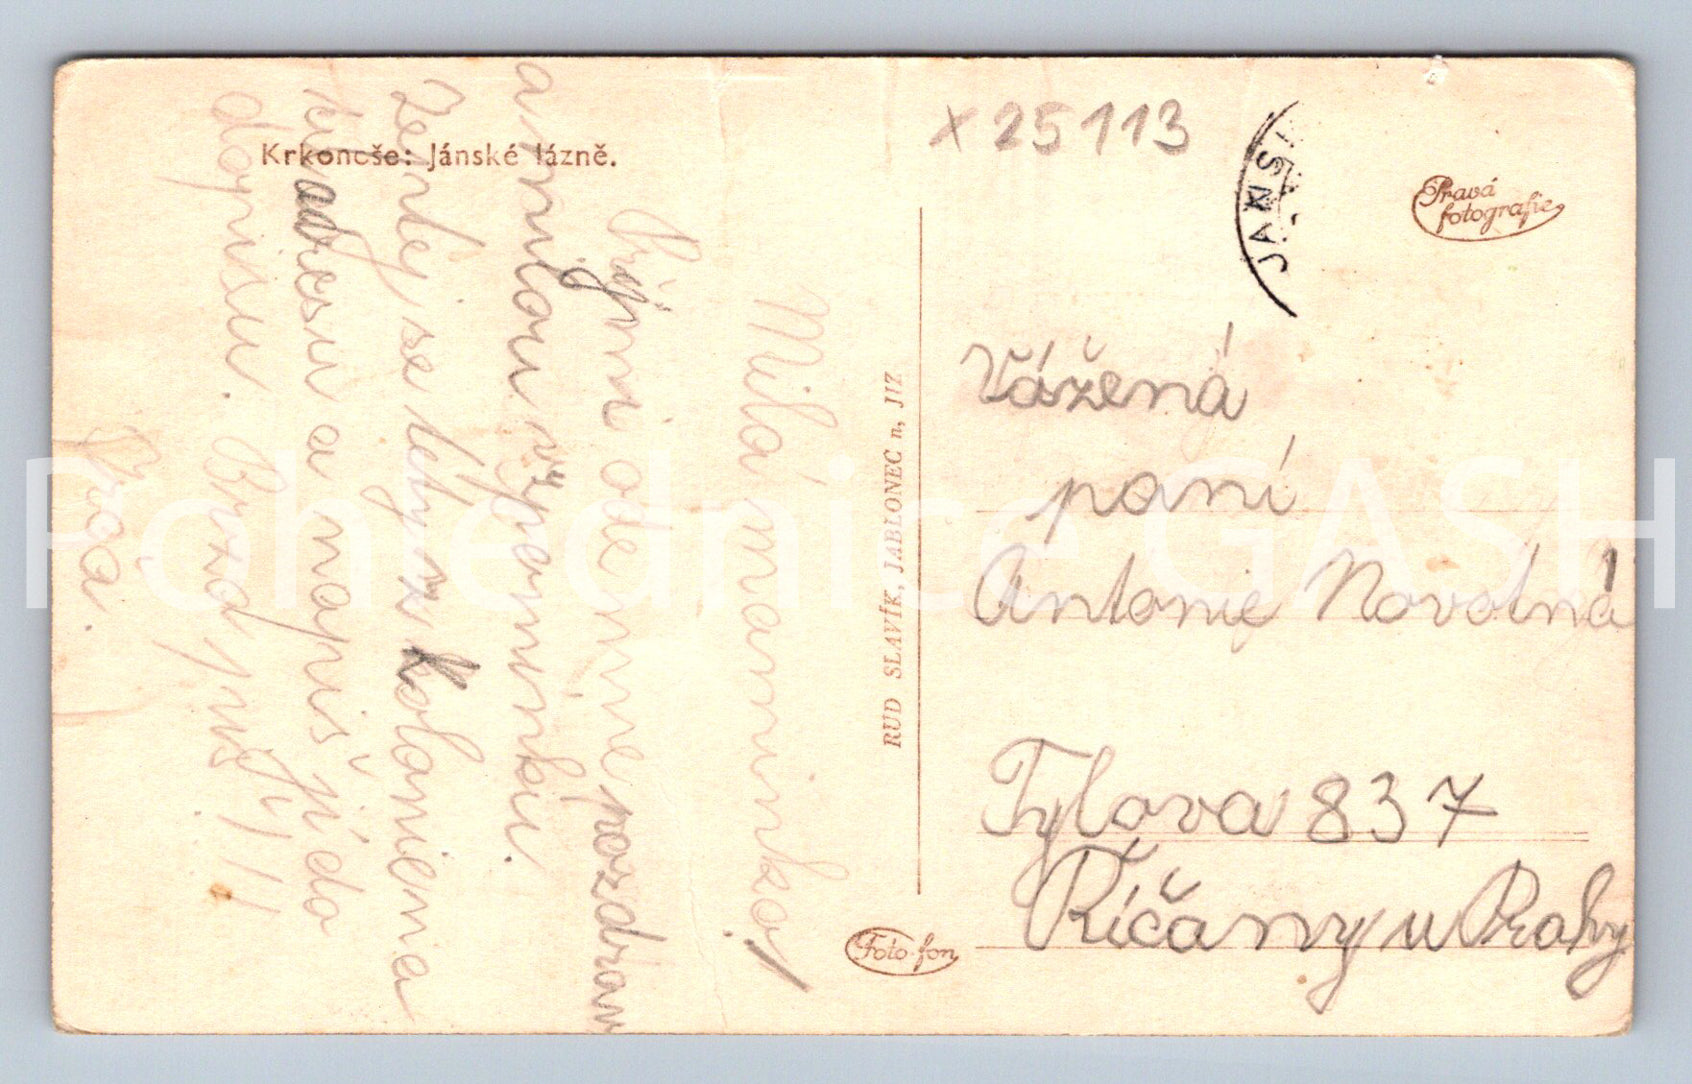 Krkonoše: Jánské lázně.
x 25113
JANSK
Pravá
fotografie
Milá maminko!
Přijmi ode mne pozdrav
a milou vzpomínku
Zeptej se
adresu a napiš jí do
dopisu. Brzo piš!!!!
RUD SLAVÍK, JABLONEC n, JIZ
Foto-fon
Vážená
paní
Antonie Novotná
Tylova 837
Říčany u Prahy
Pohlednice GASH